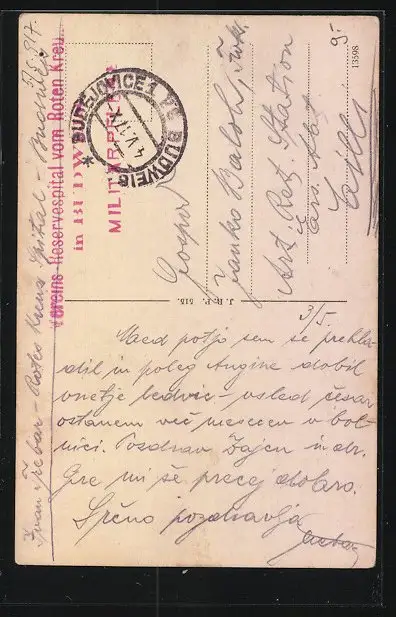 Vereins-Reservespital vom Roten Kreuz
in BUDWEIS
MILITÄRPFLEGE
BUDĚJOVICE 1 BUDWEIS
4 V 17
Gospod
Janko Baloh,
Art. Rez. Station
Cilli
13598
J. R. P. 515.
3/5.
Med potjo sem se prehla-
dil in poleg Angine dobil
vnetje ledvic – vsled česar
ostanem več mesecev v bol-
nici. Pozdrav Zajcu in dr.
Gre mi še precej dobro.
Srčno pozdravlja
Ivan Trebar – Rotes Kreuz Spital – Budweis